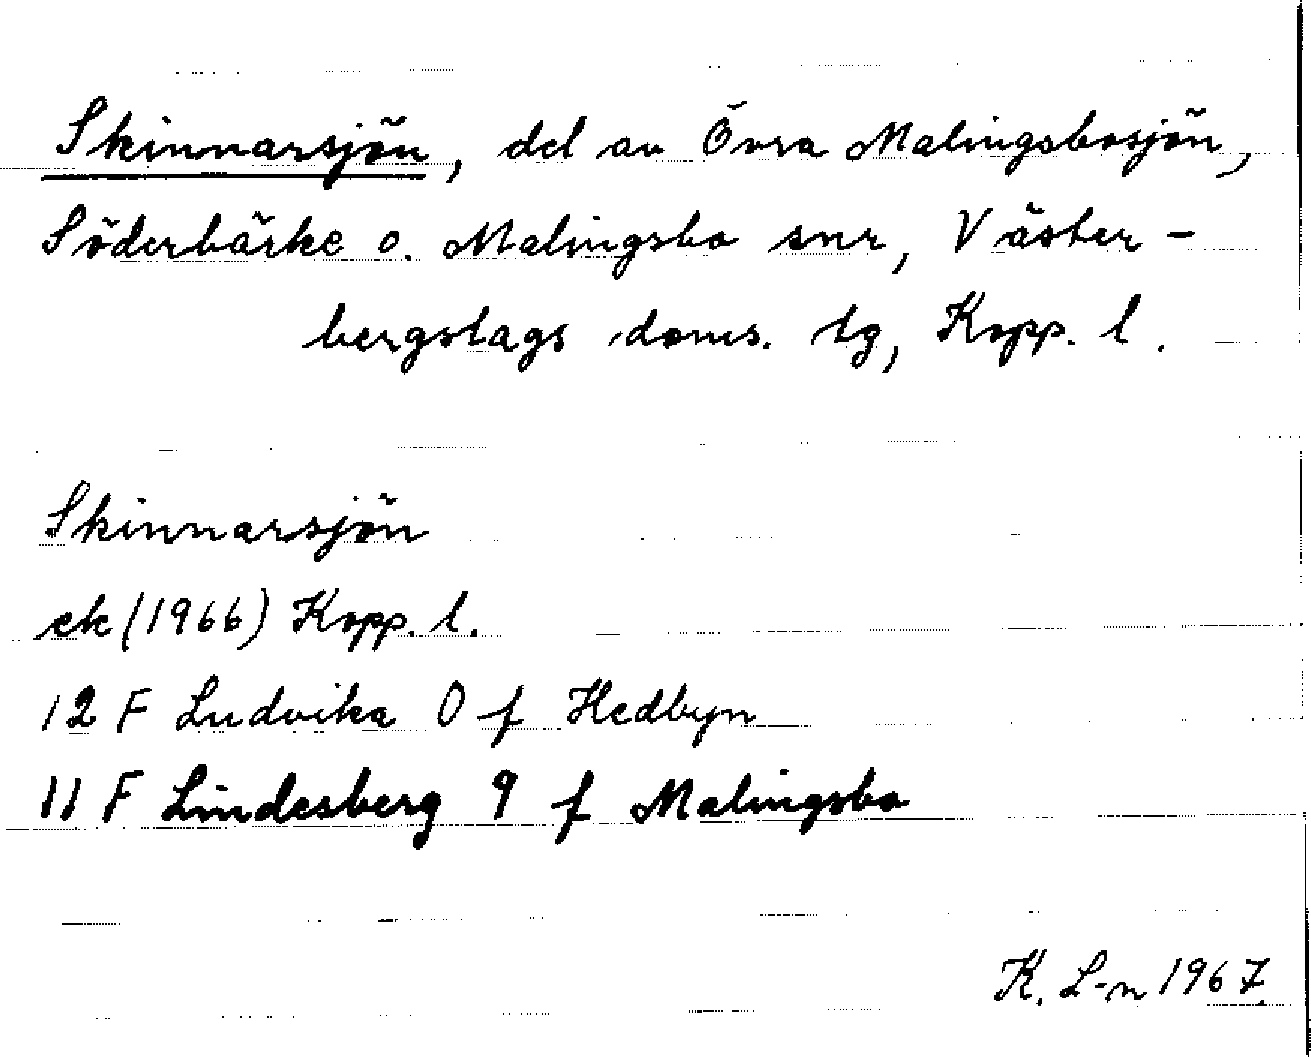 Skinnarsjön, del av Övra Malingsbosjön,
Söderbärke o. Malingsbo snr, Väster-
bergslags doms. tg, Kopp. l.
Skinnarsjön
ek (1966) Kopp. l.
12 F Ludvika 0 f Hedbyn
11 F Lindesberg 9 f Malingsbo
K. L-n 1967